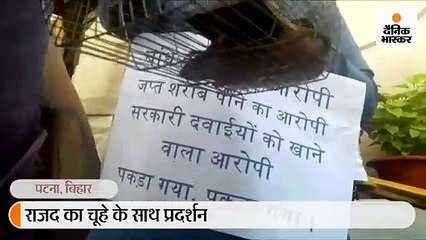 दैनिक
भास्कर
आरोपी
जप्त शराब पीने का आरोपी
सरकारी दवाईयों को खाने
वाला आरोपी
पकड़ा गया, पकड़ा गया।
पटना, बिहार
राजद का चूहे के साथ प्रदर्शन